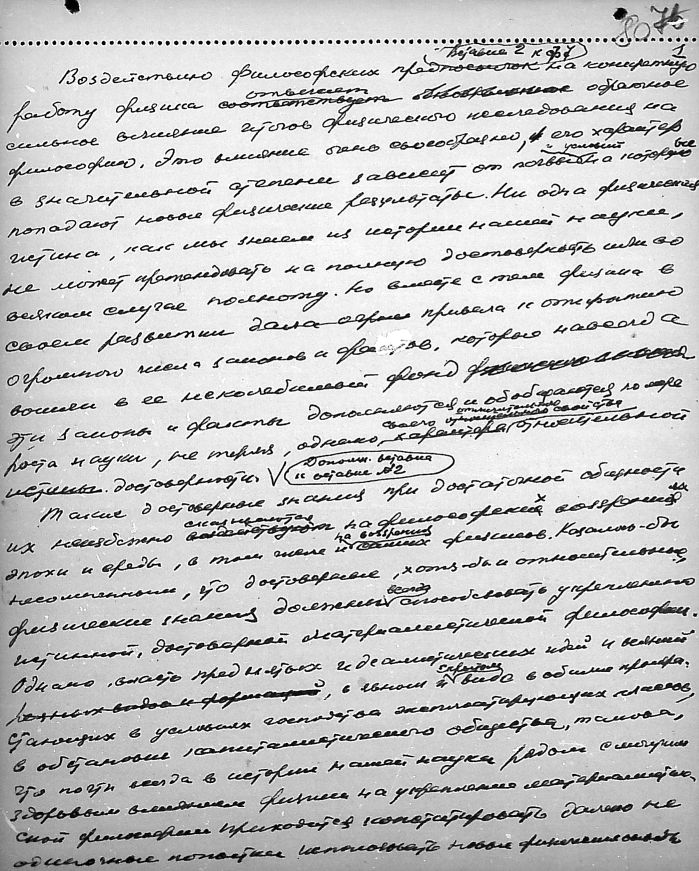 80 76
1
Вставка 2 к ф. 1
Воздействию философских предпосылок на конкретную
отвечает
работу физика соответствует обратное
сильное влияние итогов физического исследования на
философию. Это влияние очень своеобразно, и его характер
и условий
в значительной степени зависит от почвы, на которую
попадают новые физические результаты. Ни одна физическая
истина, как мы знаем из истории нашей науки,
не может претендовать на полную достоверность или во
всяком случае полноту. Но вместе с тем физика в
своем развитии дала привела к открытию
огромного числа законов и фактов, которые навсегда
вошли в ее неколебимый фонд
Эти законы и факты дополняются и обобщаются по мере
своего отличительного свойства
роста науки, не теряя, однако, характера относительной
истины. достоверности.
Дополн. вставка
к вставке №2
Такие достоверные знания при достаточной общности
сказываются
их неизбежно воздействуют на философских воззрениях
на воззрения
эпохи и среды, в том числе и самих физиков. Казалось бы
несомненным, что достоверные, хотя бы и относительные,
всегда
физические знания должны способствовать укреплению
истинной, достоверной материалистической философии.
Однако власть предвзятых идеалистических идей и всякой
скрытом
разных видов и формаций, в явном и виде в обилии прорас-
стающих в условиях господства эксплоатирующих классов,
в обстановке капиталистического общества, такова,
что почти всегда в истории нашей науки рядом с могучим
здоровым влиянием физики на укрепление материалистиче-
ской философии приходится констатировать далеко не
одиночные попытки использовать новые физические